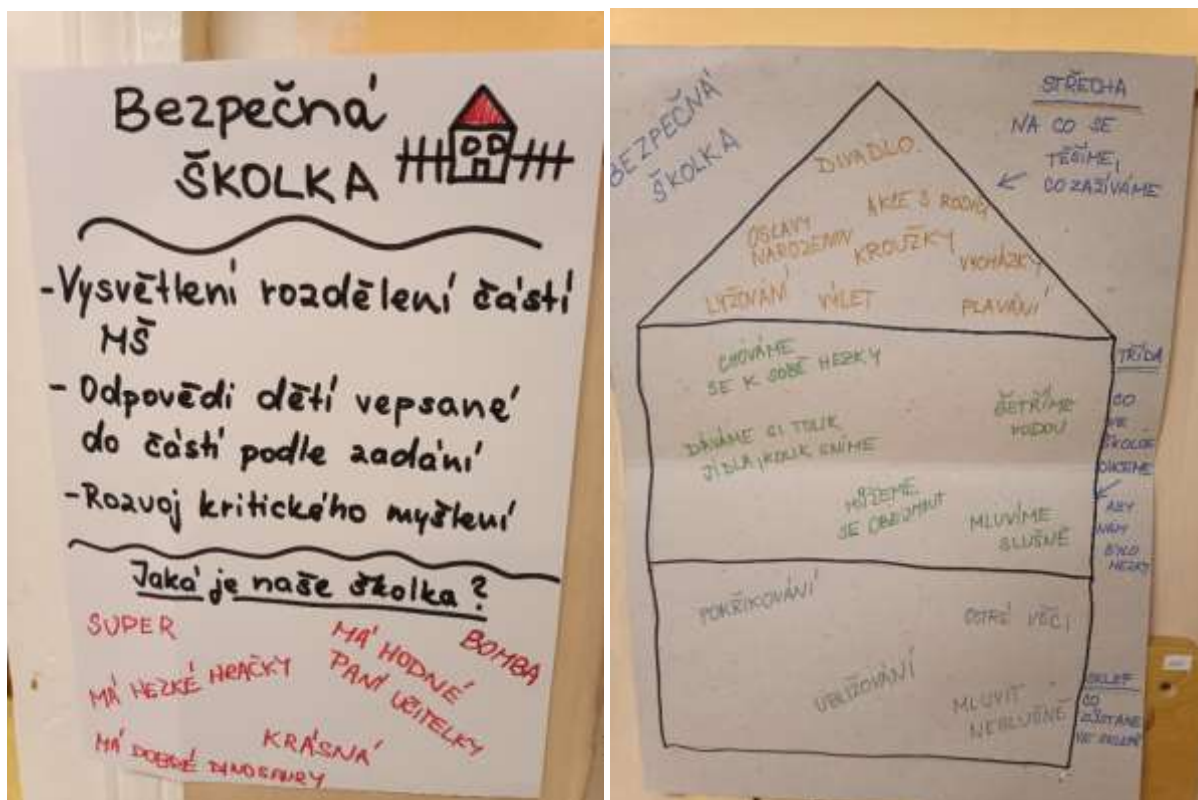 Bezpečná
ŠKOLKA
-Vysvětlení rozdělení částí
MŠ
- Odpovědi dětí vepsané
do částí podle zadání
-Rozvoj kritického myšlení
Jaká je naše školka?
SUPER
MÁ HODNÉ
PANÍ UČITELKY
BOMBA
MÁ HEZKÉ HRAČKY
KRÁSNÁ
MÁ DOBRÉ DINOSAURY
BEZPEČNÁ
ŠKOLKA
STŘECHA
NA CO SE
TĚŠÍME,
CO ZAŽÍVÁME
DIVADLO
AKCE S RODIČI
OSLAVY
NAROZENIN
KROUŽKY
VYCHÁZKY
LYŽOVÁNÍ
VÝLET
PLAVÁNÍ
TŘÍDA
CO
VE
ŠKOLCE
ABY
NÁM
BYLO
HEZKY
CHOVÁME
SE K SOBĚ HEZKY
ŠETŘÍME
VODOU
DÁVÁME SI TOLIK
JÍDLA, KOLIK SNÍME
MŮŽEME
SE OBEJMOUT
MLUVÍME
SLUŠNĚ
POKŘIKOVÁNÍ
OSTRÉ VĚCI
UBLIŽOVÁNÍ
MLUVIT
NESLUŠNĚ
SKLEP
CO
ZŮSTANE
VE SKLEPĚ